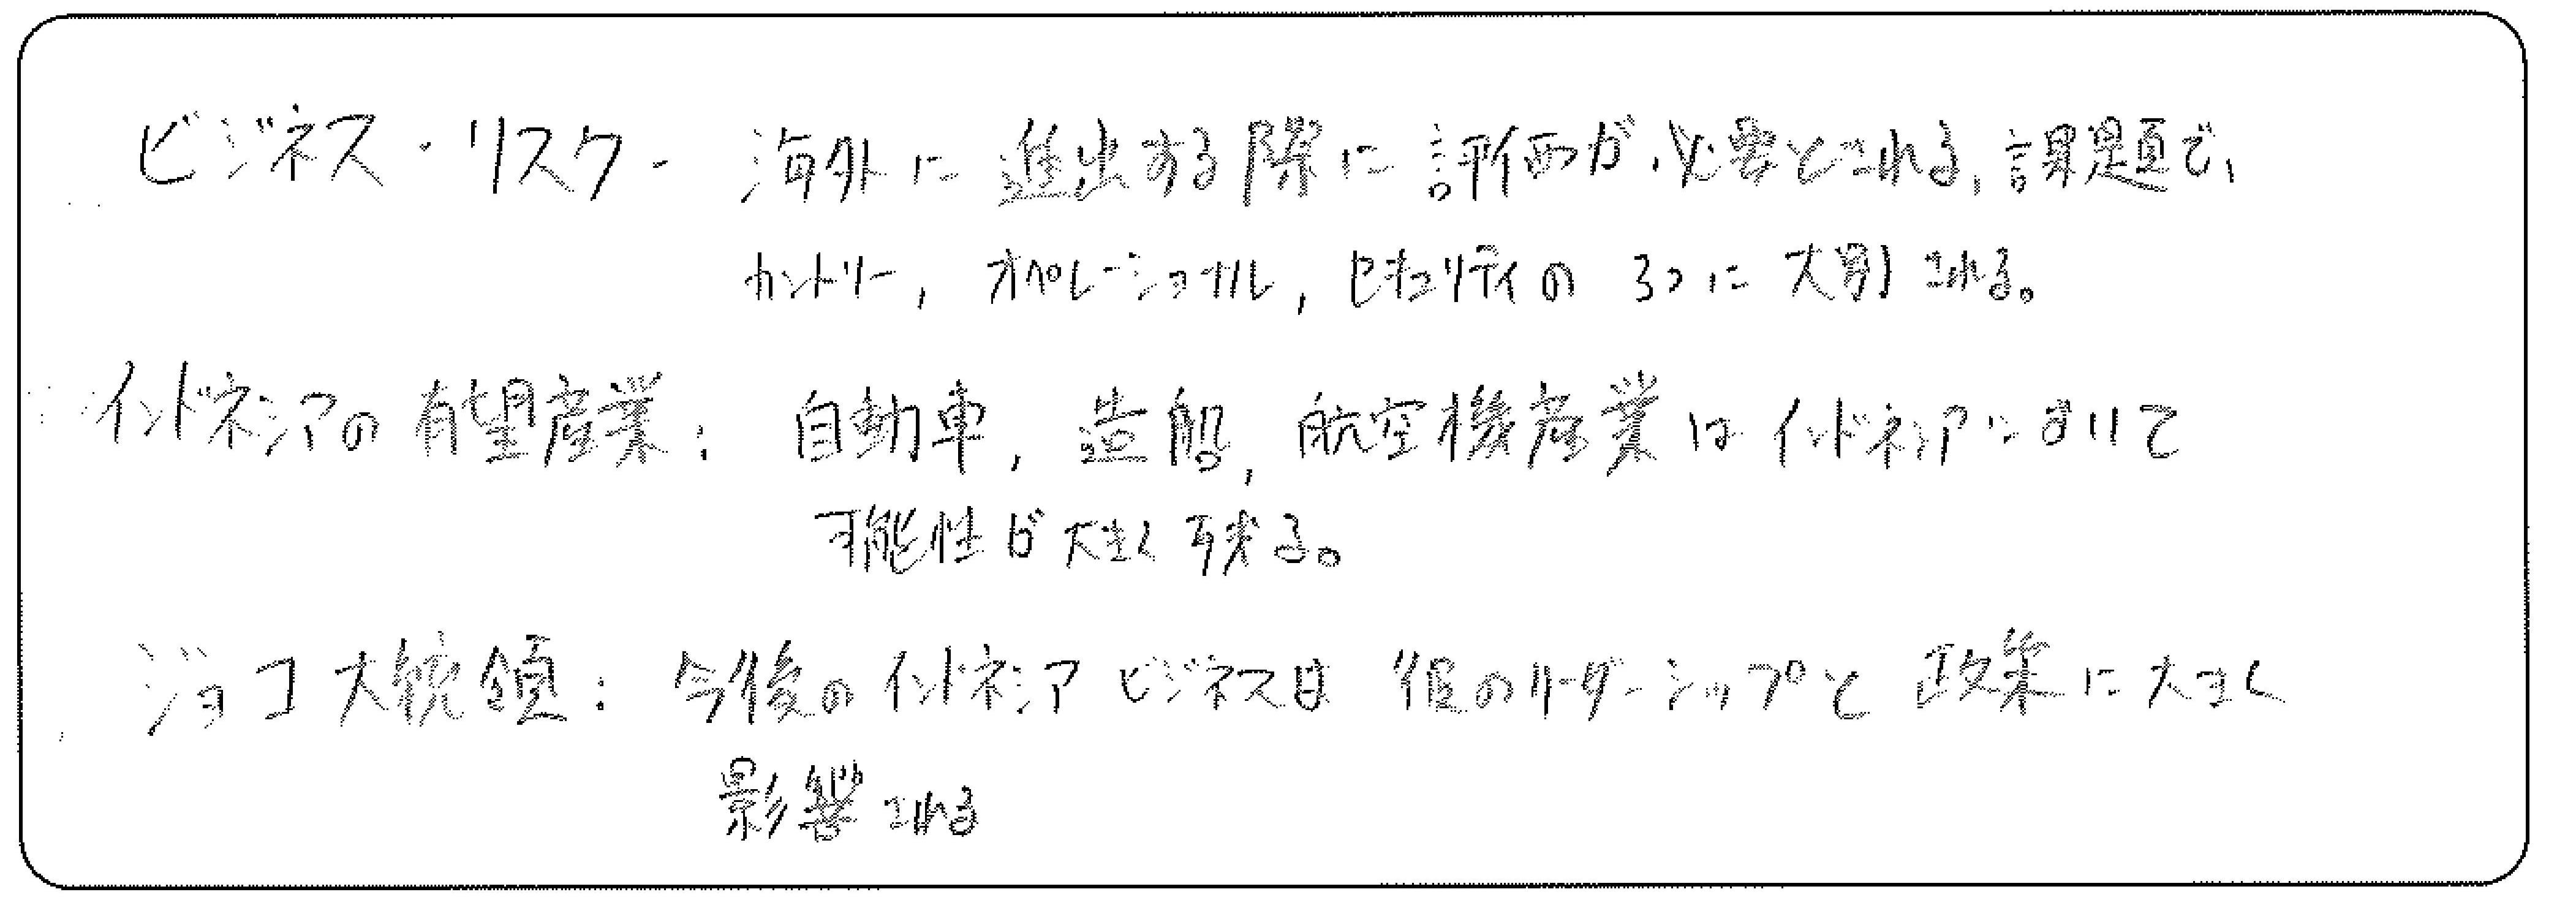 ビジネス・リスク- 海外に進出する際に評価が必要とされる課題で、
カントリー, オペレーショナル, セキュリティの3つに大別される。
インドネシアの有望産業: 自動車, 造船, 航空機産業はインドネシアにおいて
可能性が大きく残る。
ジョコ大統領: 今後のインドネシアビジネスは彼のリーダーシップと政策に大きく
影響される